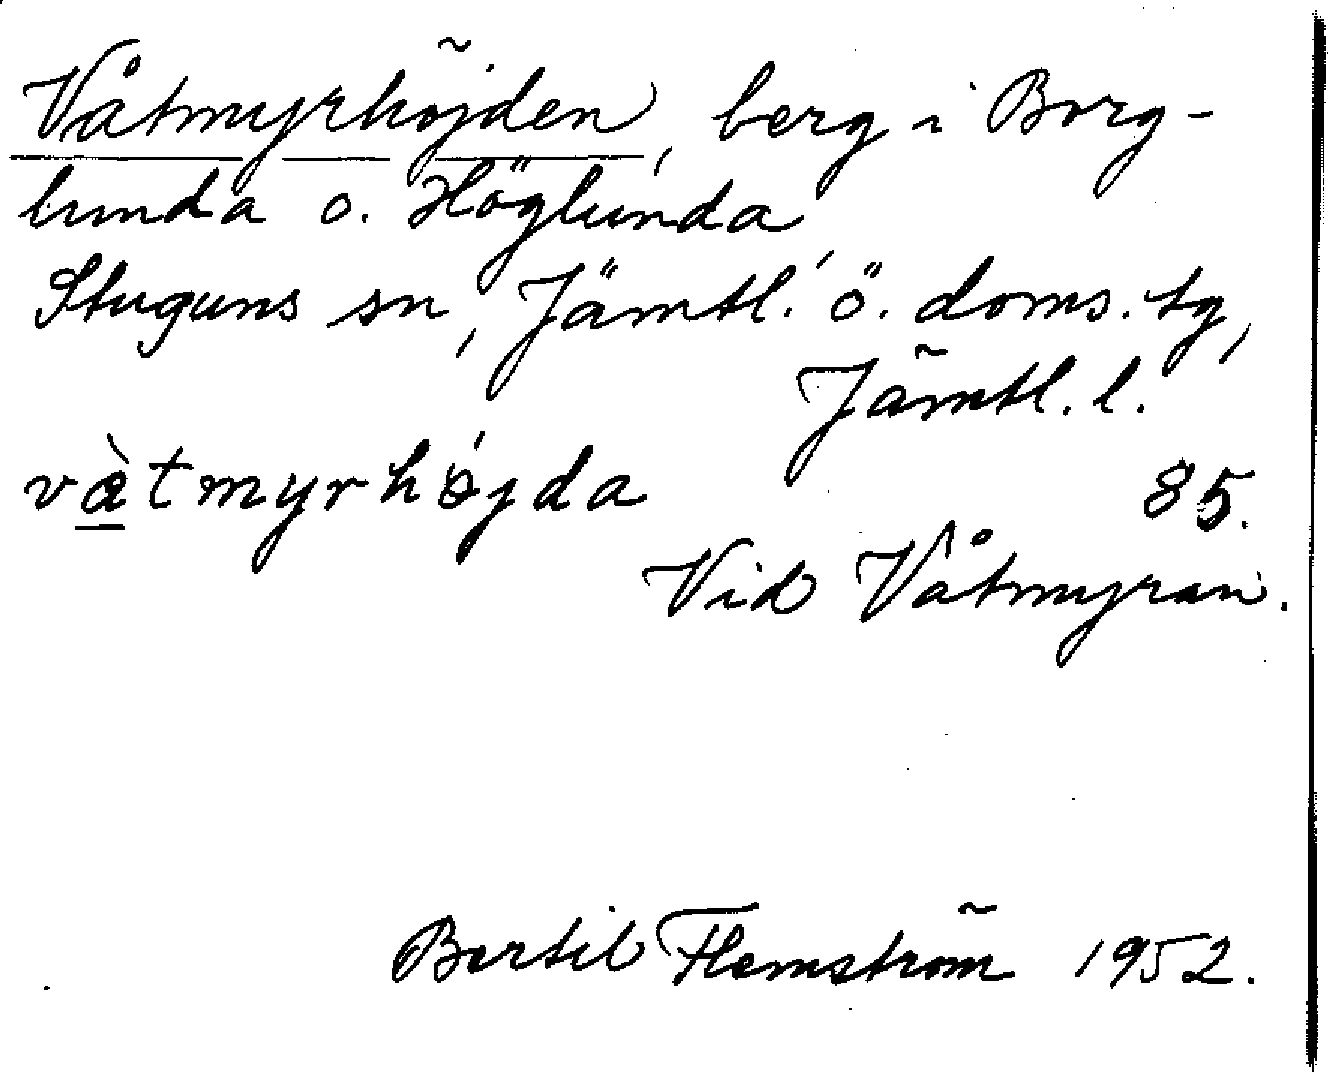 Våtmyrhöjden, berg i Borg-
lunda o. Höglunda
Stuguns sn, Jämtl. ö. doms. tg,
Jämtl. l.
vàtmyrhǿjda 85.
Vid Våtmyran.
Bertil Flemström 1952.